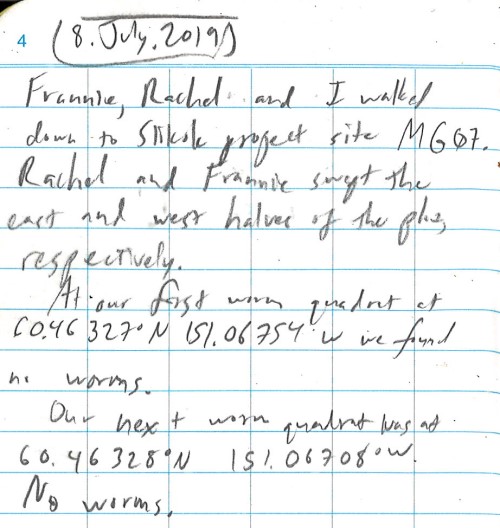 4 (8. July. 2019)
Frannie, Rachel and I walked
down to Slikok project site MG07.
Rachel and Frannie swept the
east and west halves of the plot,
respectively.
At our first worm quadrat at
60.46327°N 151.06754°W we found
no worms.
Our next worm quadrat was at
60.46328°N 151.06708°W.
No worms.